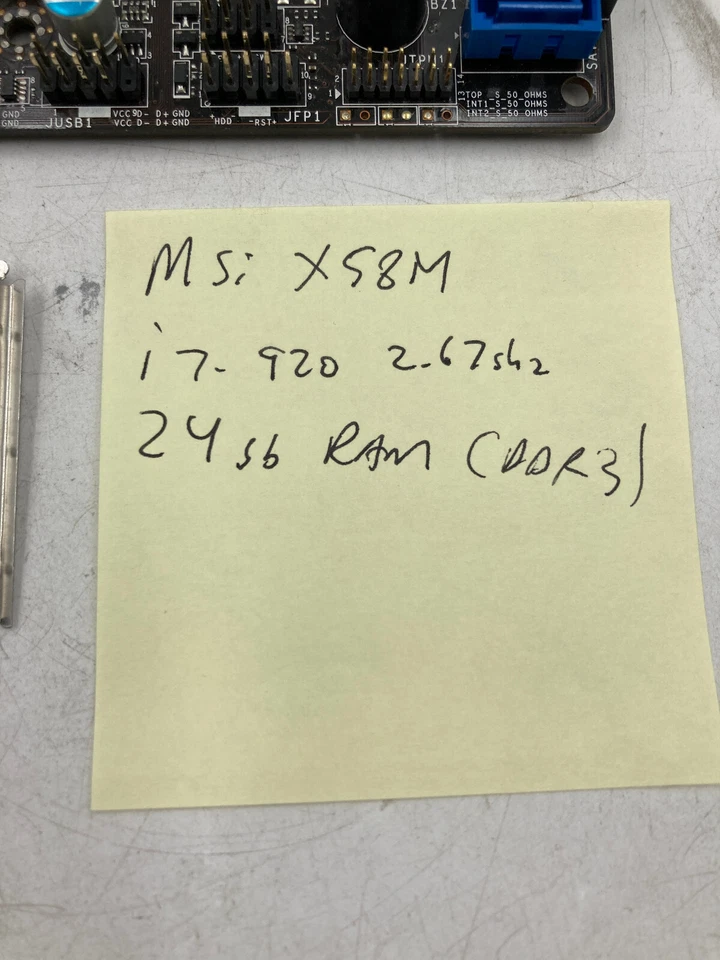 BZ1
JTPM1
SA
GND
GND
JUSB1
VCC D- D+ GND
VCC D- D+ GND
+HDD- -RST+
JFP1
TOP _S_50_OHMS
INT1_S_50_OHMS
INT2_S_50_OHMS
MSi X58M
i7-920 2.67Ghz
24Gb RAM (DDR3)